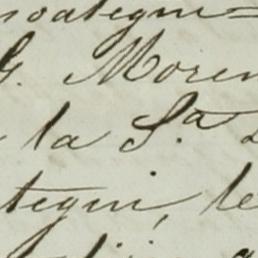 noategui=
G. Moren
la S.a
tegui, le